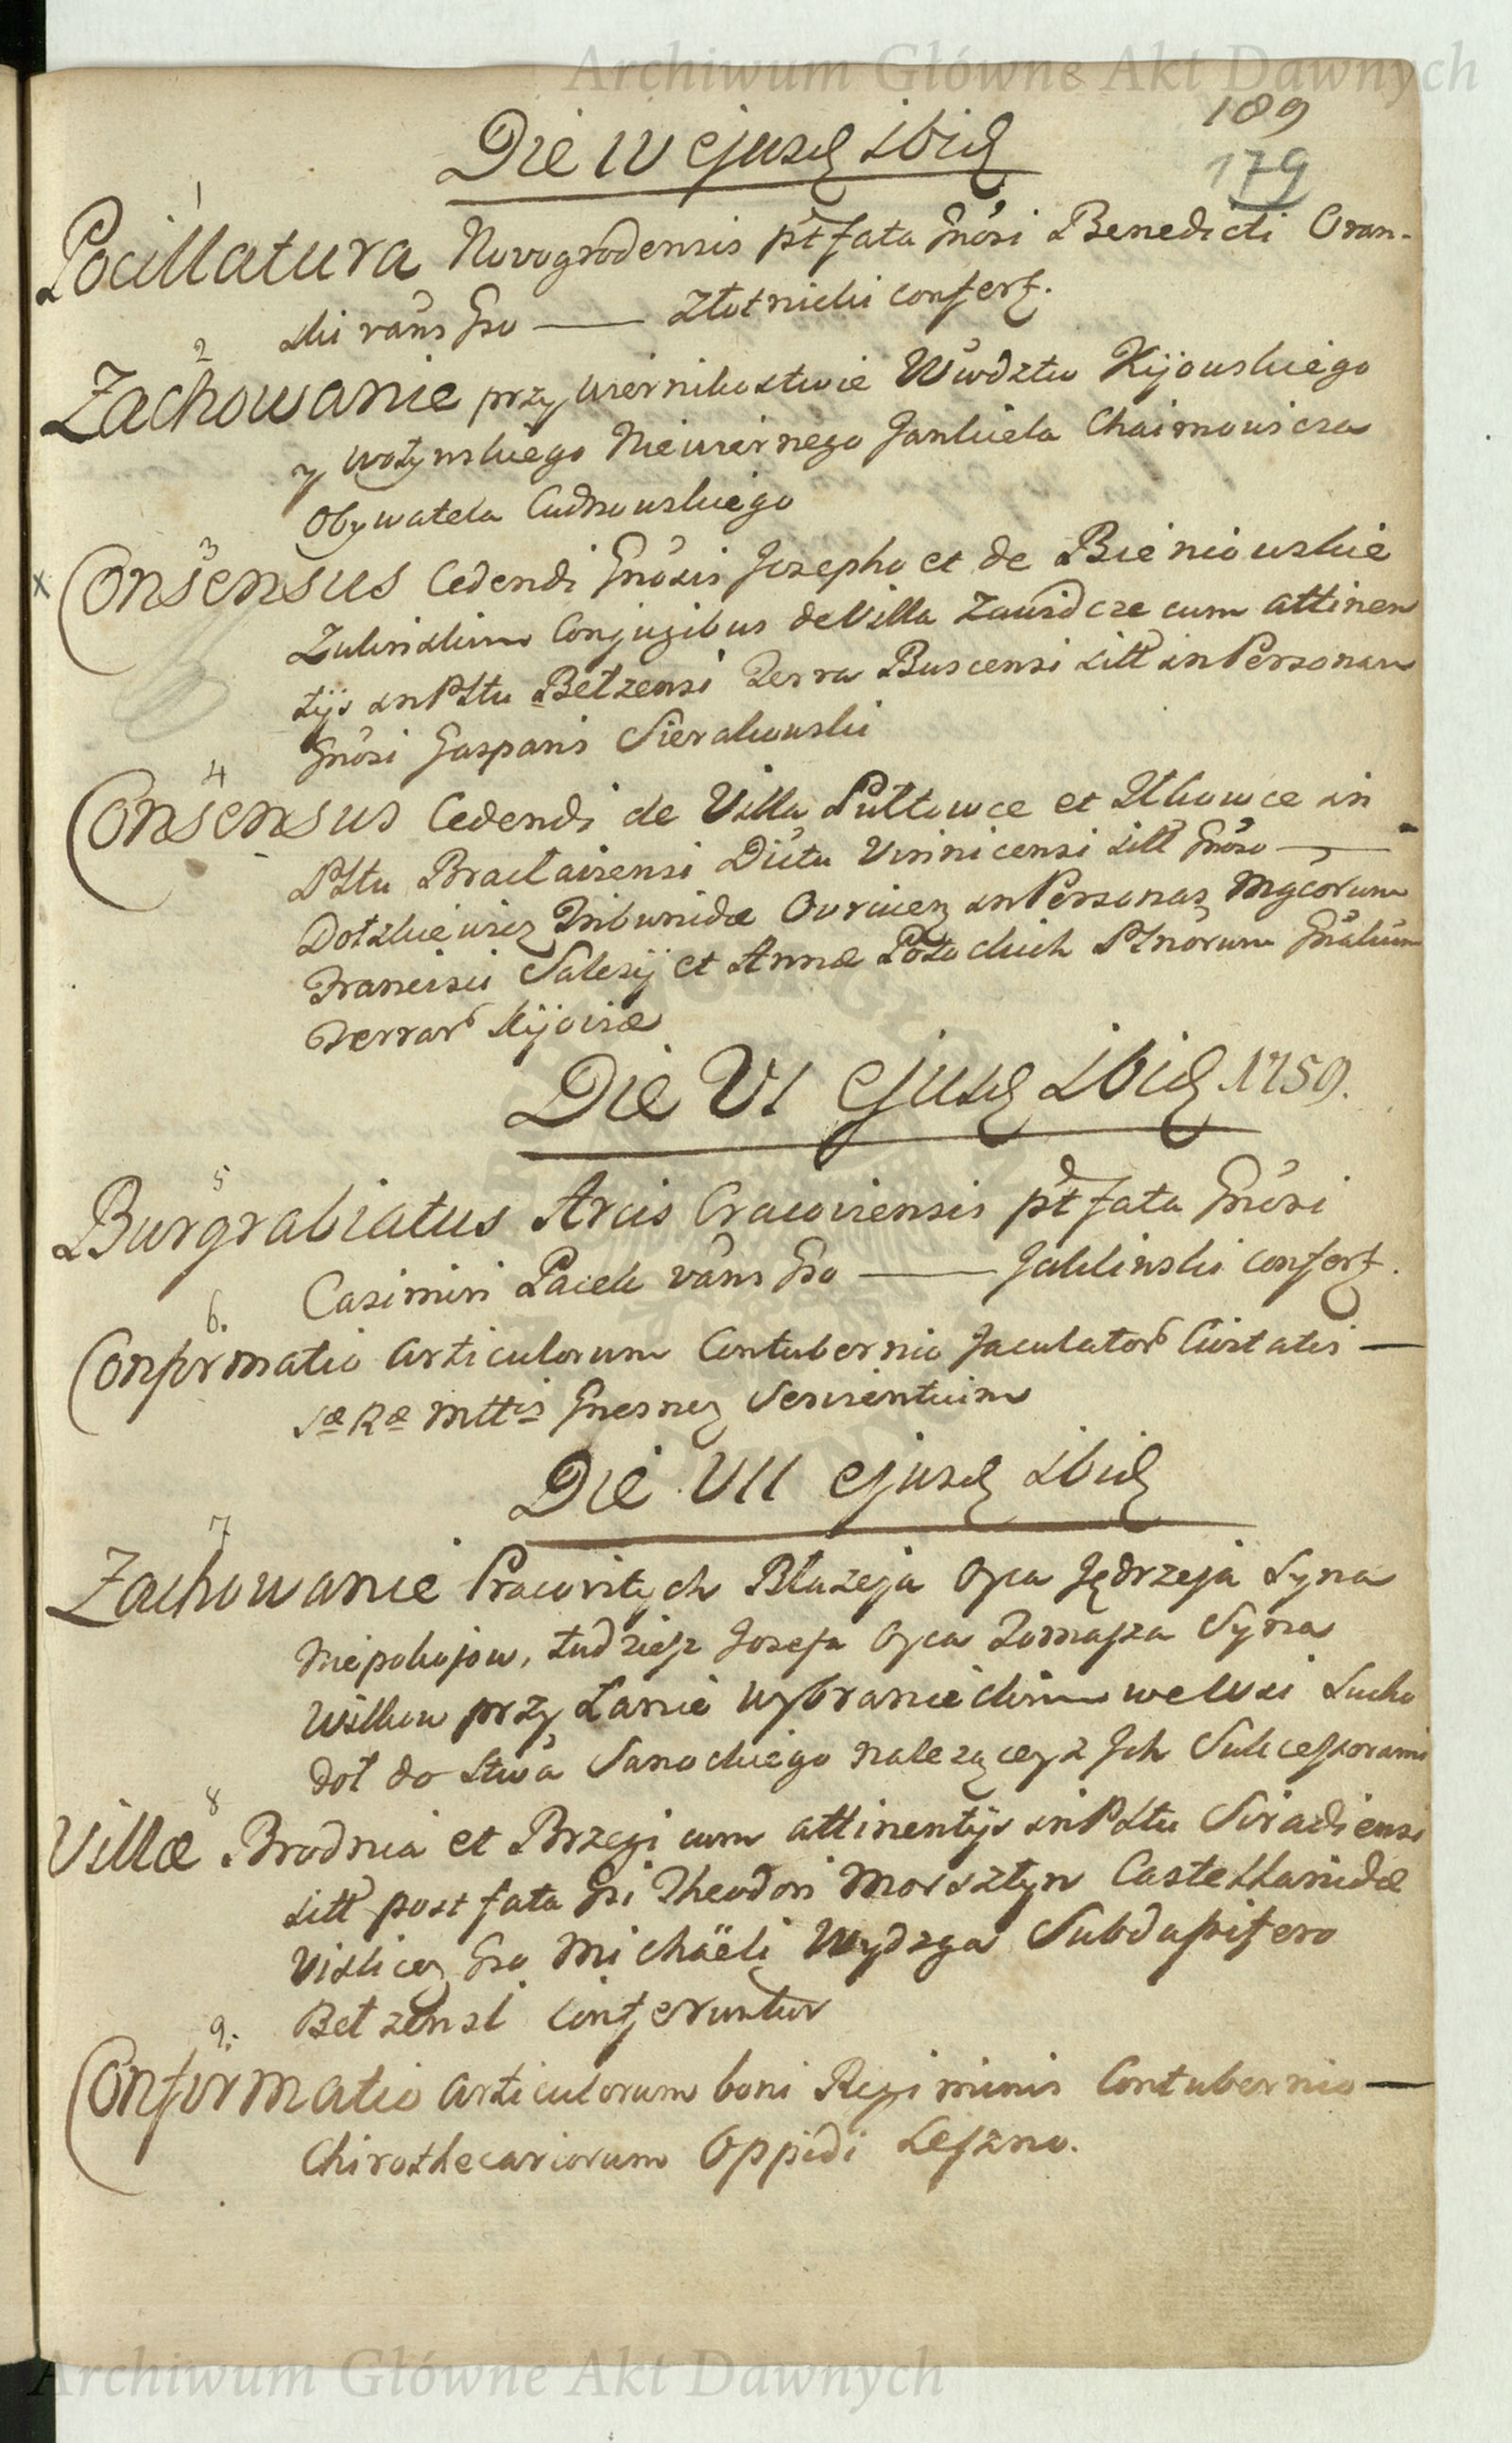 Archiwum Główne Akt Dawnych
189
179
Die IV ejusd ibid
1
Pocillatura Novogrodensis pt fata Gnosi Benedicti Oran-
ski vans Gso — Złotnicki confert.
2
Zachowanie przy wiernikostwie Wwdztw Kijowskiego
y wołynskiego Niewiernego Jankiela Chaimowicza
Obywatela Cudnowskiego
3
x Consensus Cedendi Gnosis Josepho et de Bieniowskie
Zulinskim Conjugibus de Villa Zawidcze cum attinen
tijs in Pttu Bełzensi Terra Buscensi sitt in Personam
Gnosi Gasparis Sierakowski
4
Consensus Cedendi de Villa Pułtowce et Ilkowce in
Pttu Bracłaviensi Dictu Vinnicensi sitt Gnoso —
Dołzkiewicz Tribunidæ Owrucien in Personas Mgcorum
Francisci Salesij et Annæ Potockich Ptnorum Gnalium
Terrar Kijoviæ
Die VI ejusd ibid 1759.
5
Burgrabiatus Arcis Cracoviensis pt fata Gnosi
Casimiri Pacek vans Gso — Jaklinski confert.
6.
Confirmatio Articulorum Contubernio Jaculator Civitatis —
Sæ Ræ Mttis Gnesnen Servientium
Die VII ejusd ibid
7
Zachowanie Pracovitych Błazeja Oyca Jędrzeja Syna
Niepokojow, tudziesz Josefa Oyca Tomasza Syna
Wilkow przy Łanie Wybranieckim we Wsi Sucho
doł do Stwa Sanockiego nalezącey z Jch Sukcessorami
8
Villæ Brodnia et Brzegi cum attinentijs in Pttu Siradiensi
sitt post fata Gsi Theodori Morsztyn Castellanidæ
Vislicen Gso Michaëli Wydzga Subdapifero
Bełzensi conferuntur
9.
Confirmatio Articulorum boni Regiminis Contubernio —
Chirothecariorum Oppidi Leszno.
Archiwum Główne Akt Dawnych